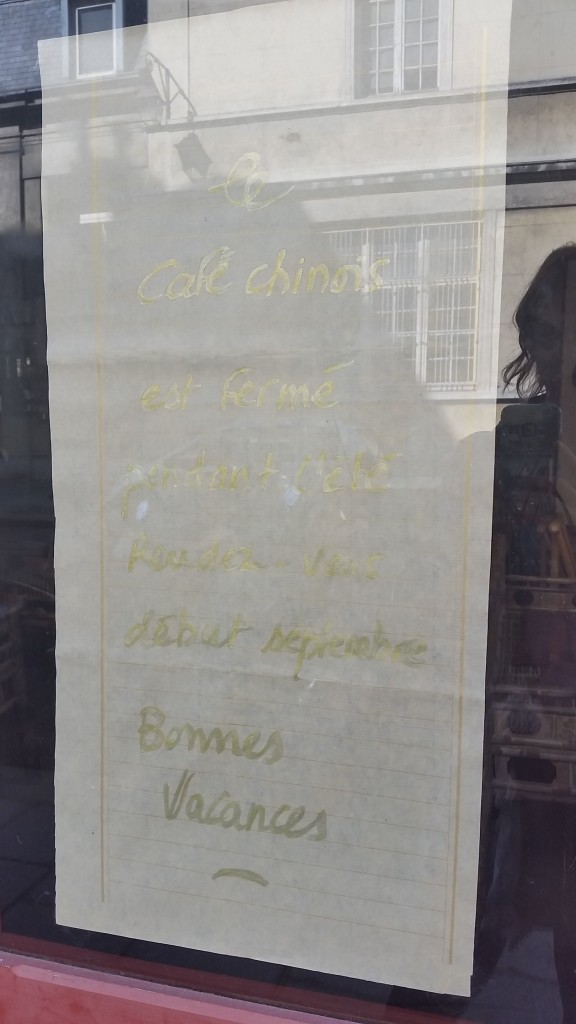 le
Café chinois
est fermé
pendant l'été
Rendez-vous
début septembre
Bonnes
Vacances